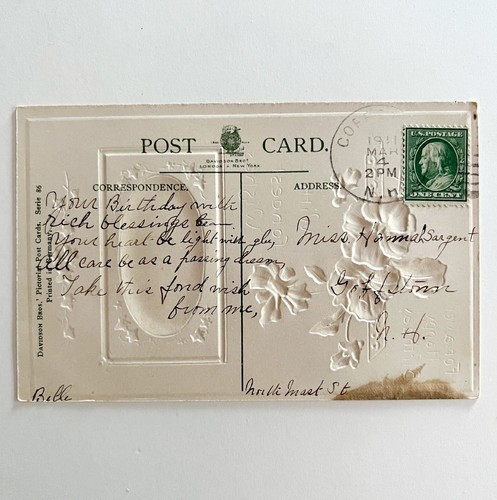 POST CARD.
DAVIDSON BROS.
LONDON & NEW YORK
CORRESPONDENCE.
ADDRESS
Your Birthday with
rich blessings
Your heart be light with glee,
All care be as a passing dream
Take this fond wish
from me,
Belle
Miss Hannah Sargent
Goffstown
N. H.
North Mast St
DAVIDSON BROS.' Pictorial Post Cards. Serie 86
Printed in Germany.
1911
MAR
4
2 PM
N.H.
U.S. POSTAGE
ONE CENT